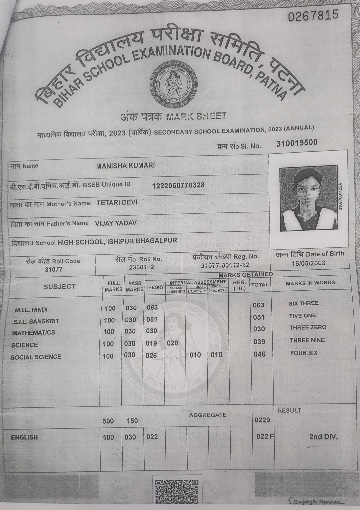 0267815
बिहार विद्यालय परीक्षा समिति, पटना
BIHAR SCHOOL EXAMINATION BOARD, PATNA
अंक पत्रक MARK SHEET
माध्यमिक विद्यालय परीक्षा, 2023 (वार्षिक) SECONDARY SCHOOL EXAMINATION, 2023 (ANNUAL)
क्रम सं० Sl. No. 310019500
नाम Name MANISHA KUMARI
बी.एस.ई.बी. यूनिक आई.डी. BSEB Unique ID 1222060770328
माता का नाम Mother's Name TETARI DEVI
पिता का नाम Father's Name VIJAY YADAV
विद्यालय School HIGH SCHOOL, ISHIPUR BHAGALPUR
रौल कोड Roll Code रौल नं० Roll No. पंजीयन संख्या Reg. No. जन्म तिथि Date of Birth
31077
MARKS OBTAINED
SUBJECT FULL MARKS PASS MARKS THEORY INTERNAL ASSESSMENT REG. TOTAL MARKS IN WORDS
M.I.L. HINDI 100 030 063 063 SIX THREE
S.I.L. SANSKRIT 100 030 051 051 FIVE ONE
MATHEMATICS 100 030 030 030 THREE ZERO
SCIENCE 100 030 019 020 039 THREE NINE
SOCIAL SCIENCE 100 030 026 010 010 046 FOUR SIX
500 150 AGGREGATE 0229 RESULT
ENGLISH 100 030 022 022 F 2nd DIV.